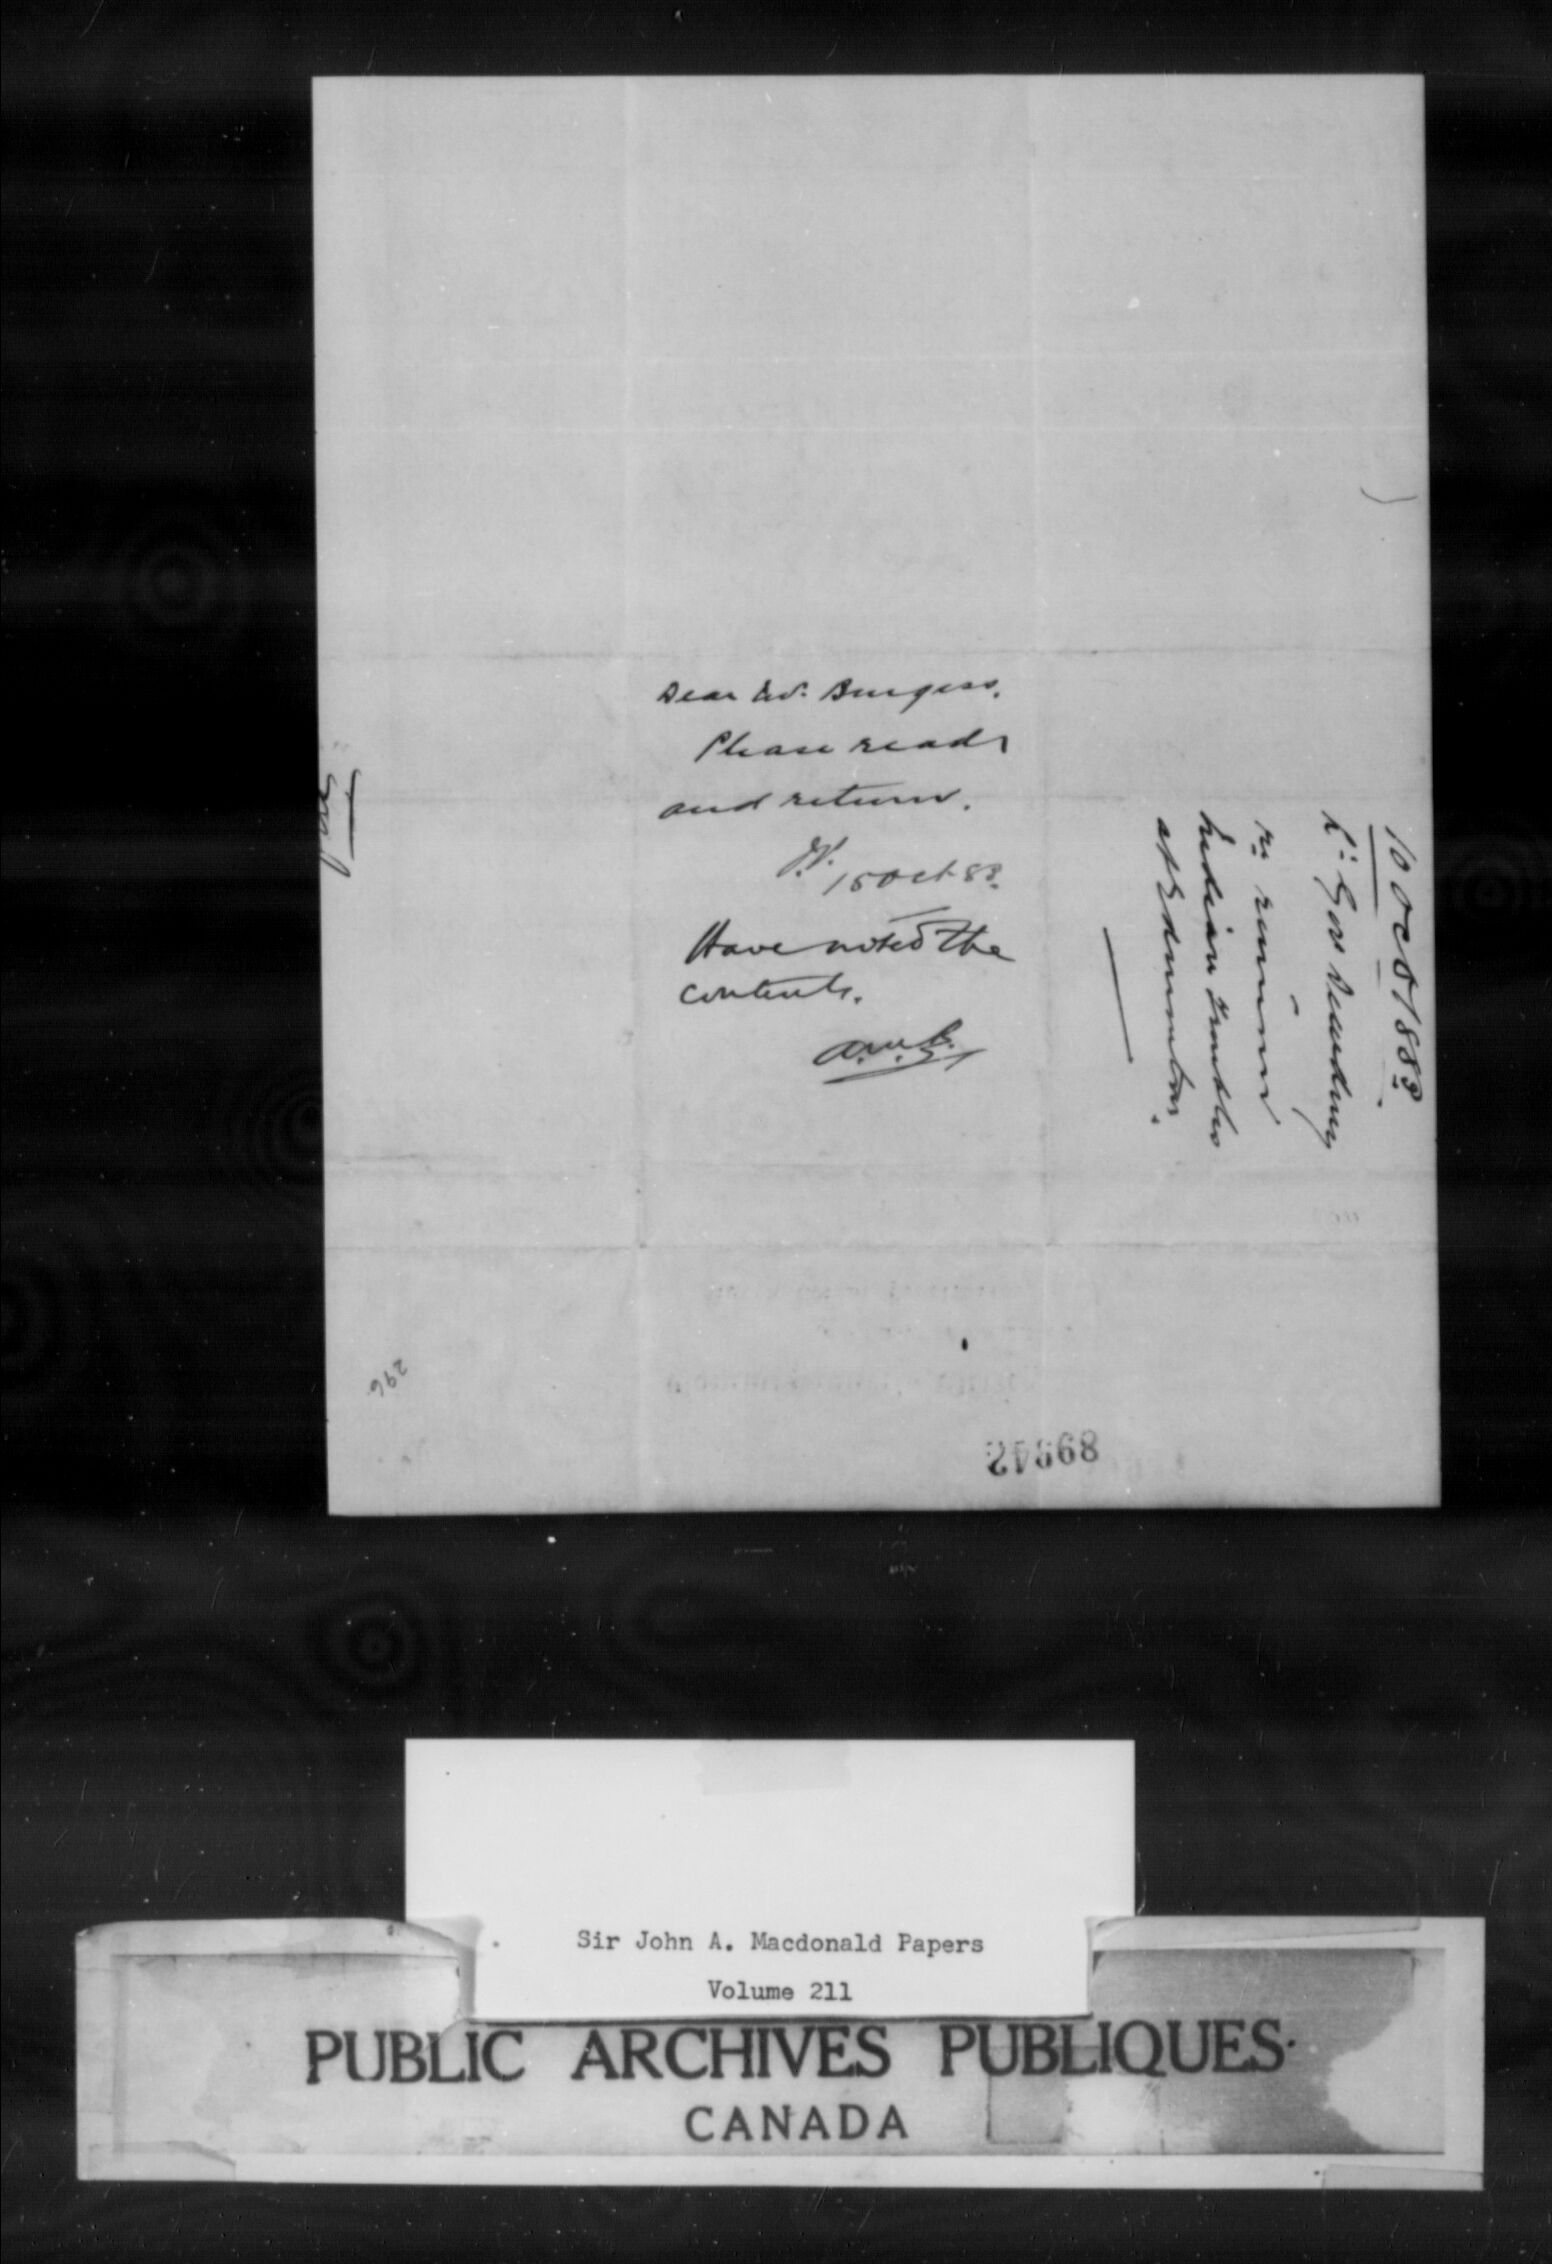 Dear Mr. Burgess,
Please read
and return.
15 Oct 83.
Have noted the
contents.
A.M.B.
10 Oct 1883
Lt: Gov Dewdney
re rumour
Indian Troubles
at Edmonton.
296
Sir John A. Macdonald Papers
Volume 211
PUBLIC ARCHIVES PUBLIQUES
CANADA